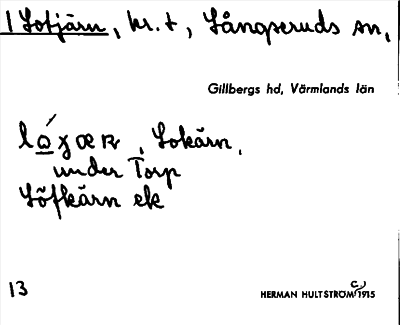 1 Lotjärn, kr. t, Långseruds sn,
Gillbergs hd, Värmlands län
Lokärn,
under Torp
Löfkärn ek
13
HERMAN HULTSTRÖM 1915